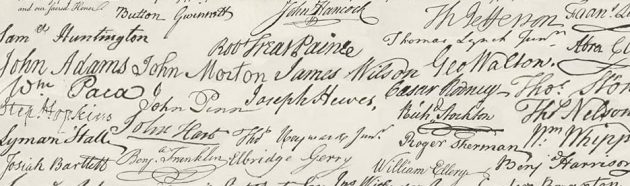 and our sacred Honor
Button Gwinnett John Hancock Th Jefferson
Sam el Huntington Rob Treat Paine Thomas Lynch Junr.
John Adams John Morton James Wilson Geo Walton. Abra Cl
Wm Paca Joseph Hewes, Caesar Rodney Thos. Ston
Step. Hopkins John Penn Richd. Stockton Thos Nelson
Lyman Hall John Hart Thos Heyward Junr. Roger Sherman Wm Whipp
Josiah Bartlett Benj. Franklin Elbridge Gerry William Ellery Benj Harrison